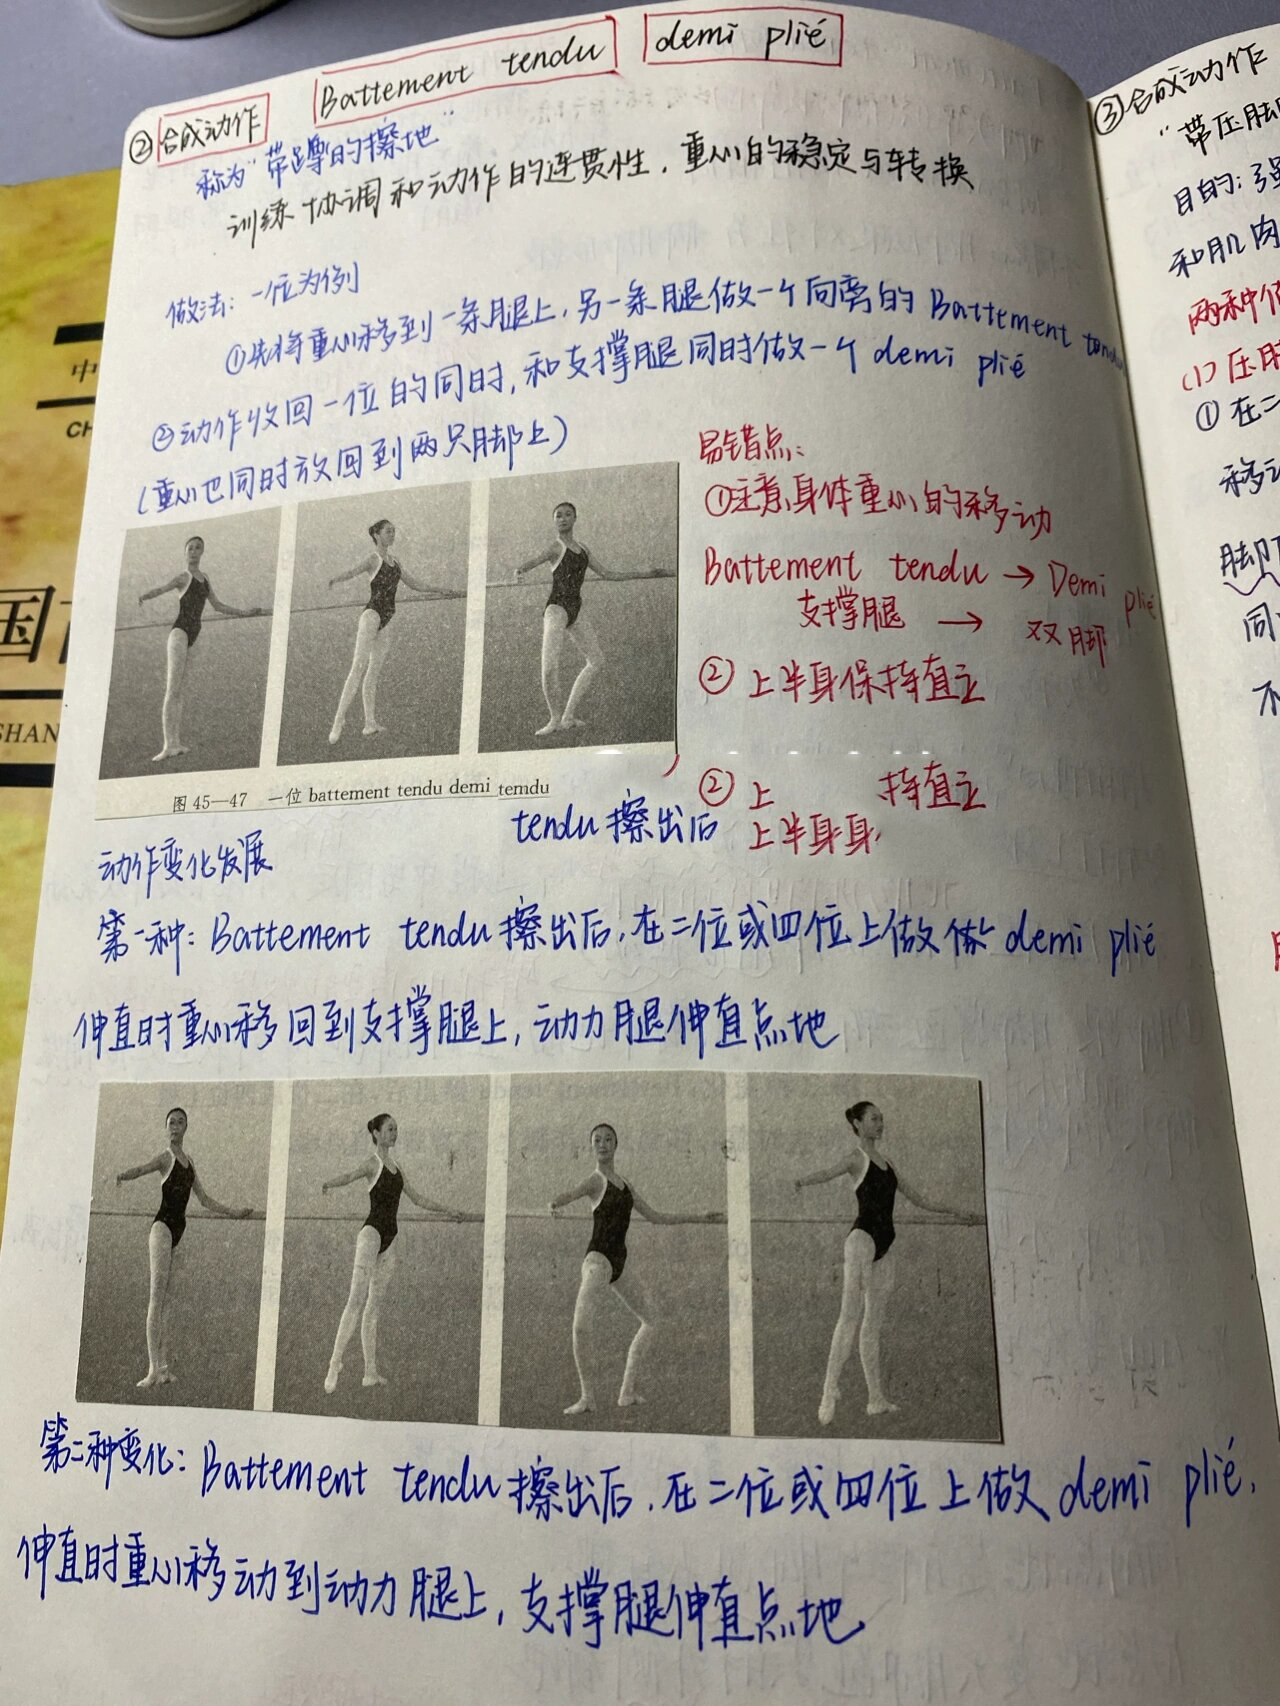 Battement tendu demi plié
②合成动作
称为"带蹲的擦地"
训练协调和动作的连贯性，重心的稳定与转换
做法：一位为例
①先将重心移到一条腿上，另一条腿做一个向旁的 Battement tendu
②动作收回一位的同时，和支撑腿同时做一个 demi plié
(重心也同时放回到两只脚上)
易错点：
①注意身体重心的移动
Battement tendu → Demi plié
支撑腿 → 双脚
② 上半身保持直立
② 上 持直立
上半身身
图 45—47 一位 battement tendu demi temdu
tendu 擦出后
动作变化发展
第一种：Battement tendu 擦出后，在二位或四位上做 demi plié
伸直时重心移回到支撑腿上，动力腿伸直点地
第二种变化：Battement tendu 擦出后，在二位或四位上做 demi plié，
伸直时重心移动到动力腿上，支撑腿伸直点地
③合成动作
"带压脚
目的：强
和肌肉
两种
(1)压脚
① 在二
移动
脚
同
不
中
CH
国
SHAN